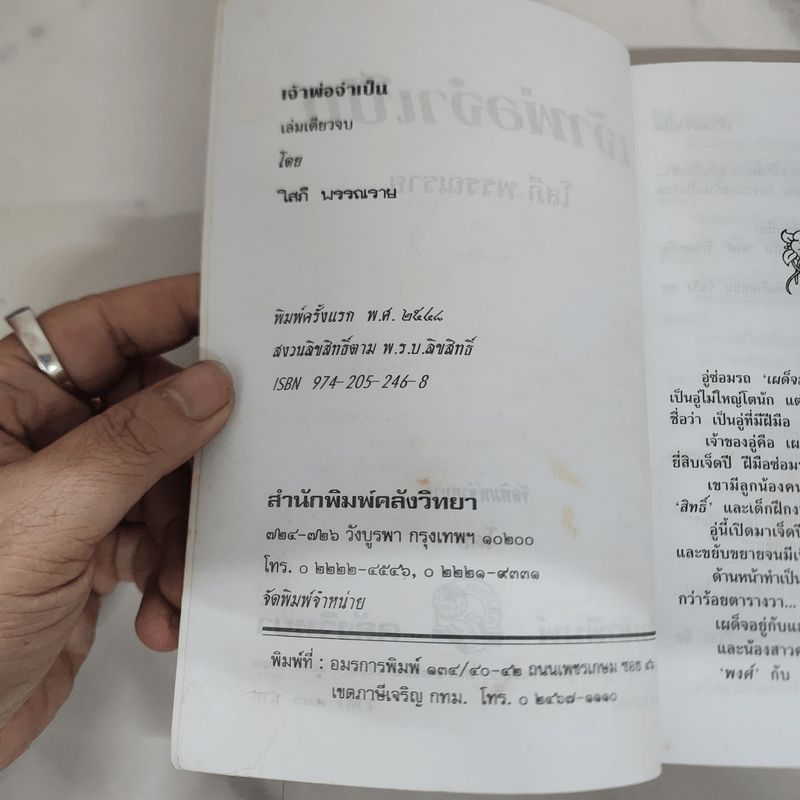 เจ้าพ่อจำเป็น
เล่มเดียวจบ
โดย
โสภี พรรณราย
พิมพ์ครั้งแรก พ.ศ. ๒๕๔๘
สงวนลิขสิทธิ์ตาม พ.ร.บ.ลิขสิทธิ์
ISBN 974-205-246-8
สำนักพิมพ์คลังวิทยา
๗๒๔-๗๒๖ วังบูรพา กรุงเทพฯ ๑๐๒๐๐
โทร. ๐ ๒๒๒๒-๔๕๔๖, ๐ ๒๒๒๑-๙๓๓๑
จัดพิมพ์จำหน่าย
พิมพ์ที่ : อมรการพิมพ์ ๑๓๔/๔๐-๔๒ ถนนเพชรเกษม ซอย
เขตภาษีเจริญ กทม. โทร. ๐ ๒๔๖๗-๑๑๑๐
อู่ซ่อมรถ 'เผด็จ
เป็นอู่ไม่ใหญ่โตนัก แต่
ชื่อว่า เป็นอู่ที่มีฝีมือ
เจ้าของอู่คือ
ยี่สิบเจ็ดปี ฝีมือซ่อม
เขามีลูกน้องคน
'สิทธิ์' และเด็กฝึกง
อู่นี้เปิดมาเจ็ดปี
และขยับขยายจนมี
ด้านหน้าทำเป็น
กว่าร้อยตารางวา...
เผด็จอยู่กับ
และน้องสาว
'พงศ์' กับ